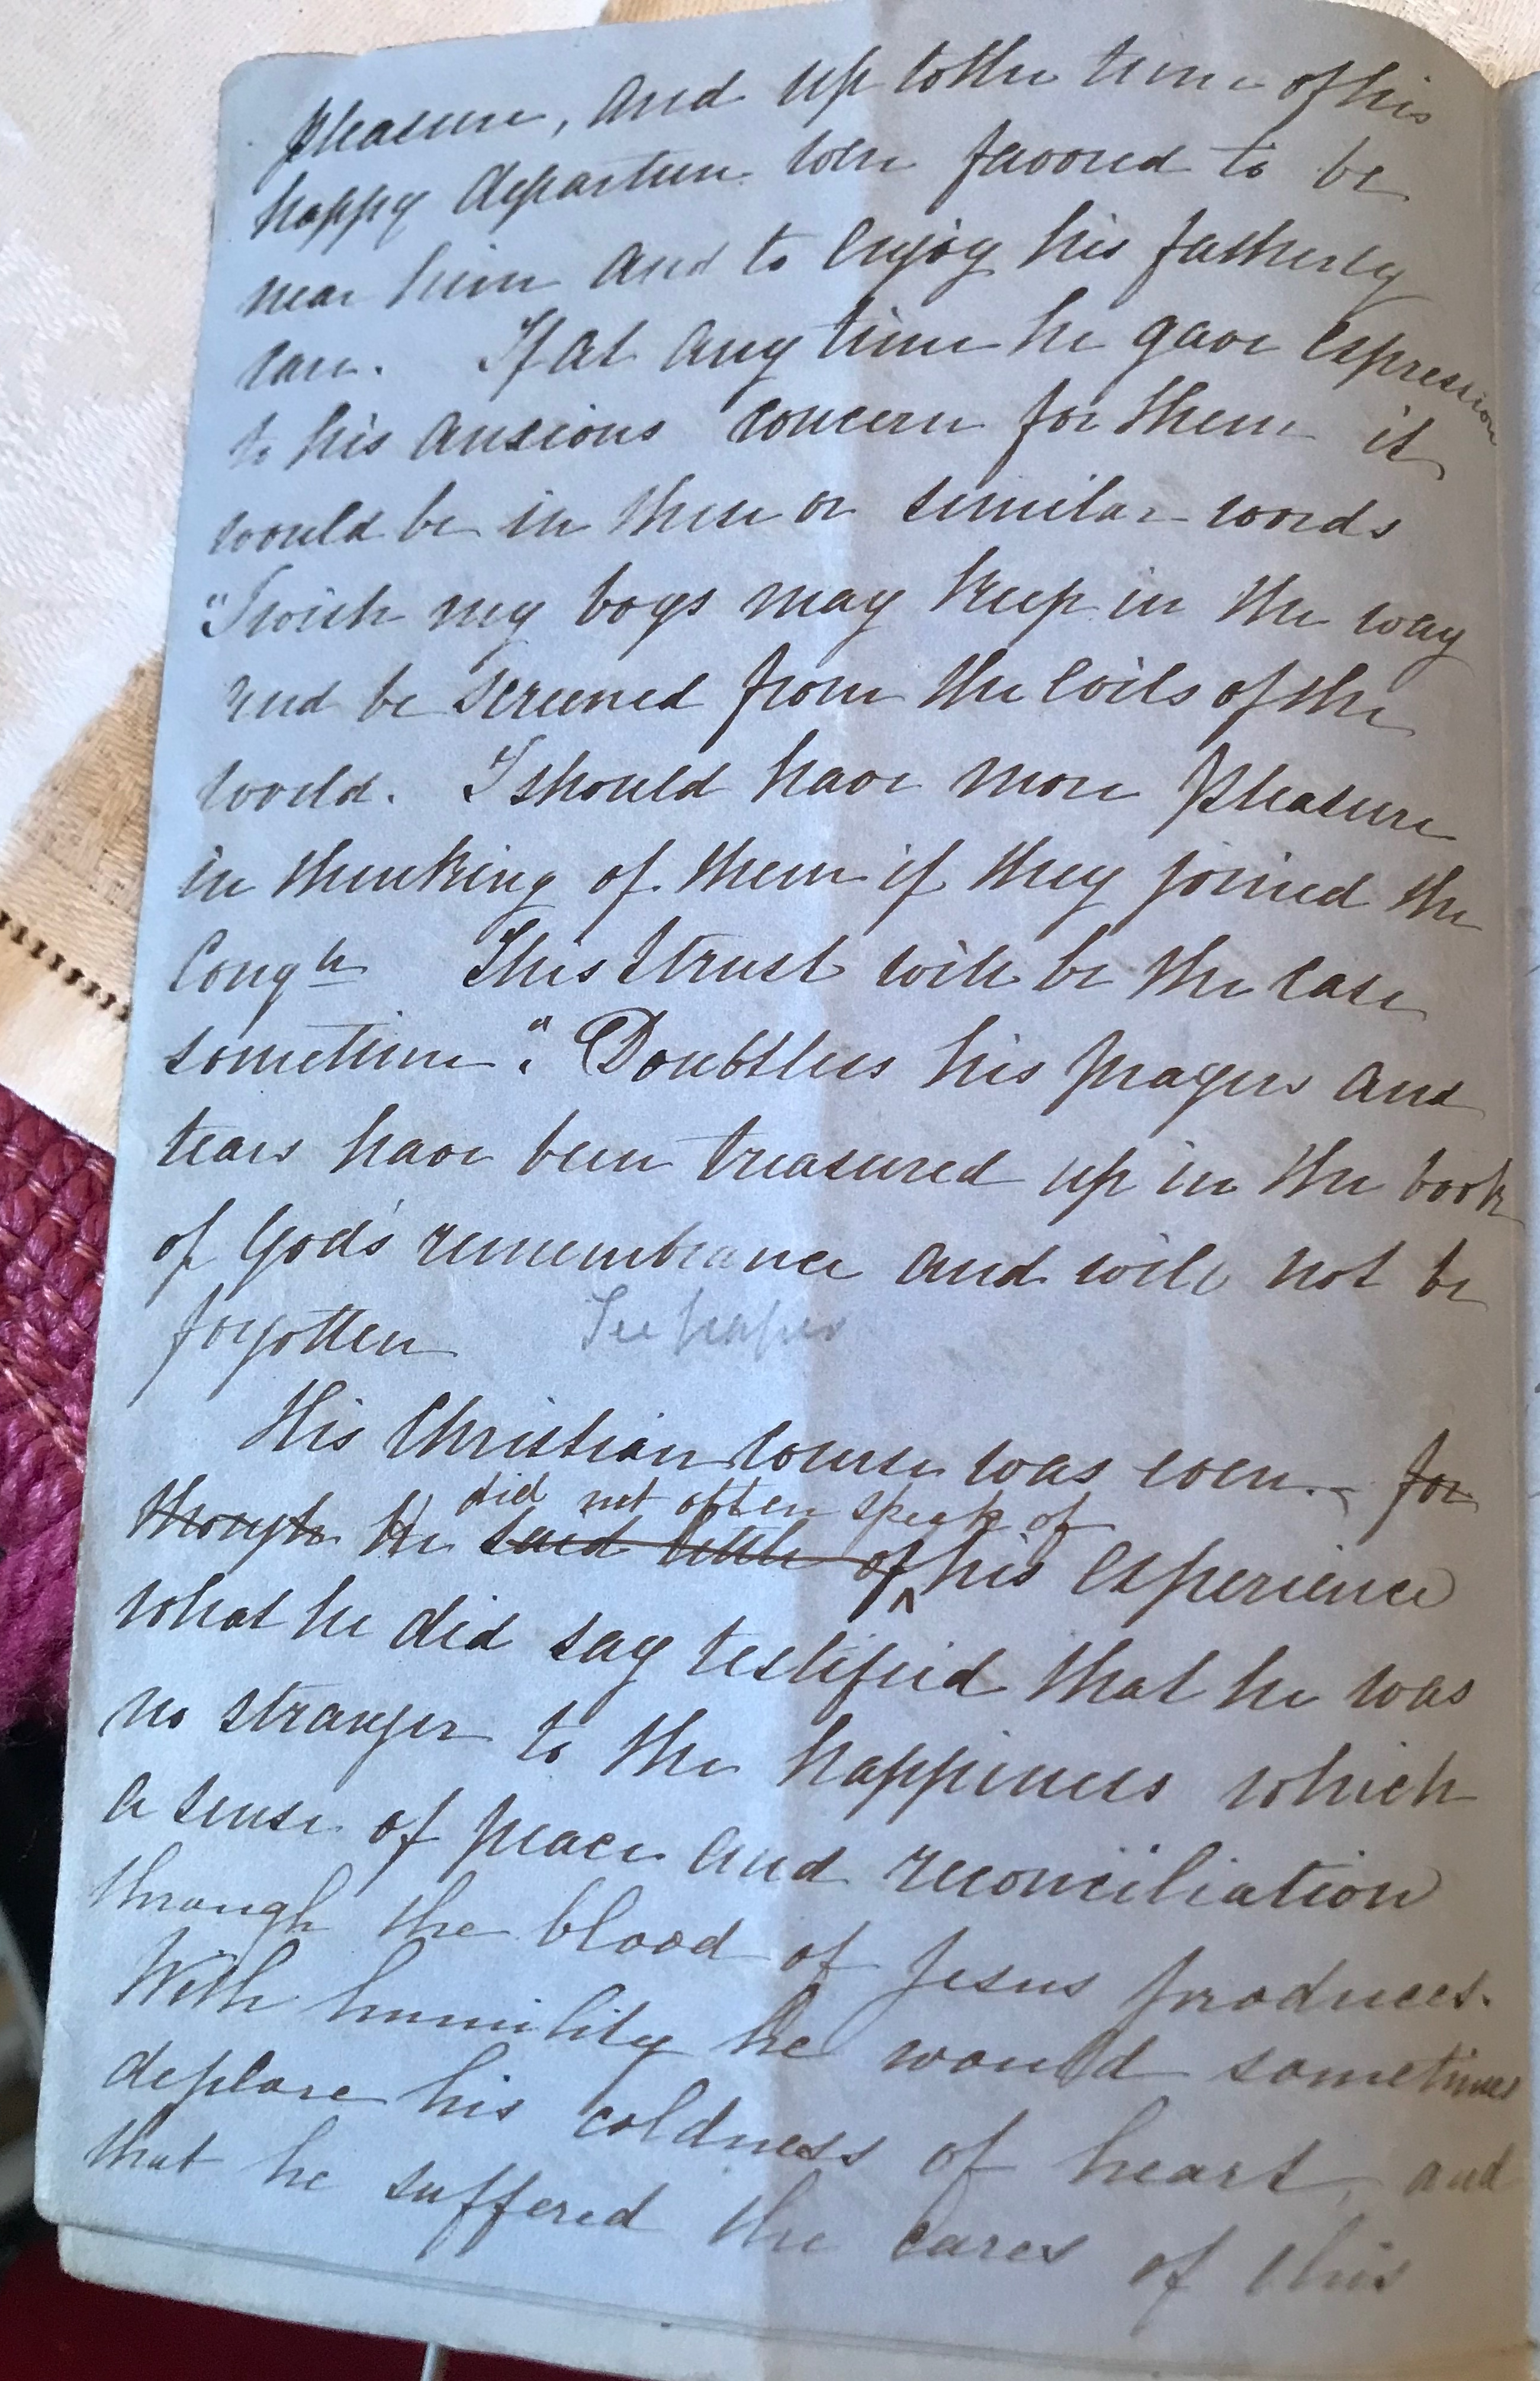 pleasure, and up to the time of his
happy departure were favored to be
near him and to enjoy his fatherly
care. If at any time he gave expression
to his anxious concern for them it
would be in these or similar words
"I wish my boys may keep in the way
and be screened from the evils of the
world. I should have more pleasure
in thinking of them if they joined the
Congn This I trust will be the case
sometime". Doubtless his prayers and
tears have been treasured up in the book
of God's remembrance and will not be
forgotten See paper
His Christian course was even. for
did not often speak of
though He said little of his experience
what he did say testified that he was
no stranger to the happiness which
a sense of peace and reconciliation
through the blood of Jesus produces.
With humility he would sometimes
deplore his coldness of heart, and
that he suffered the cares of this